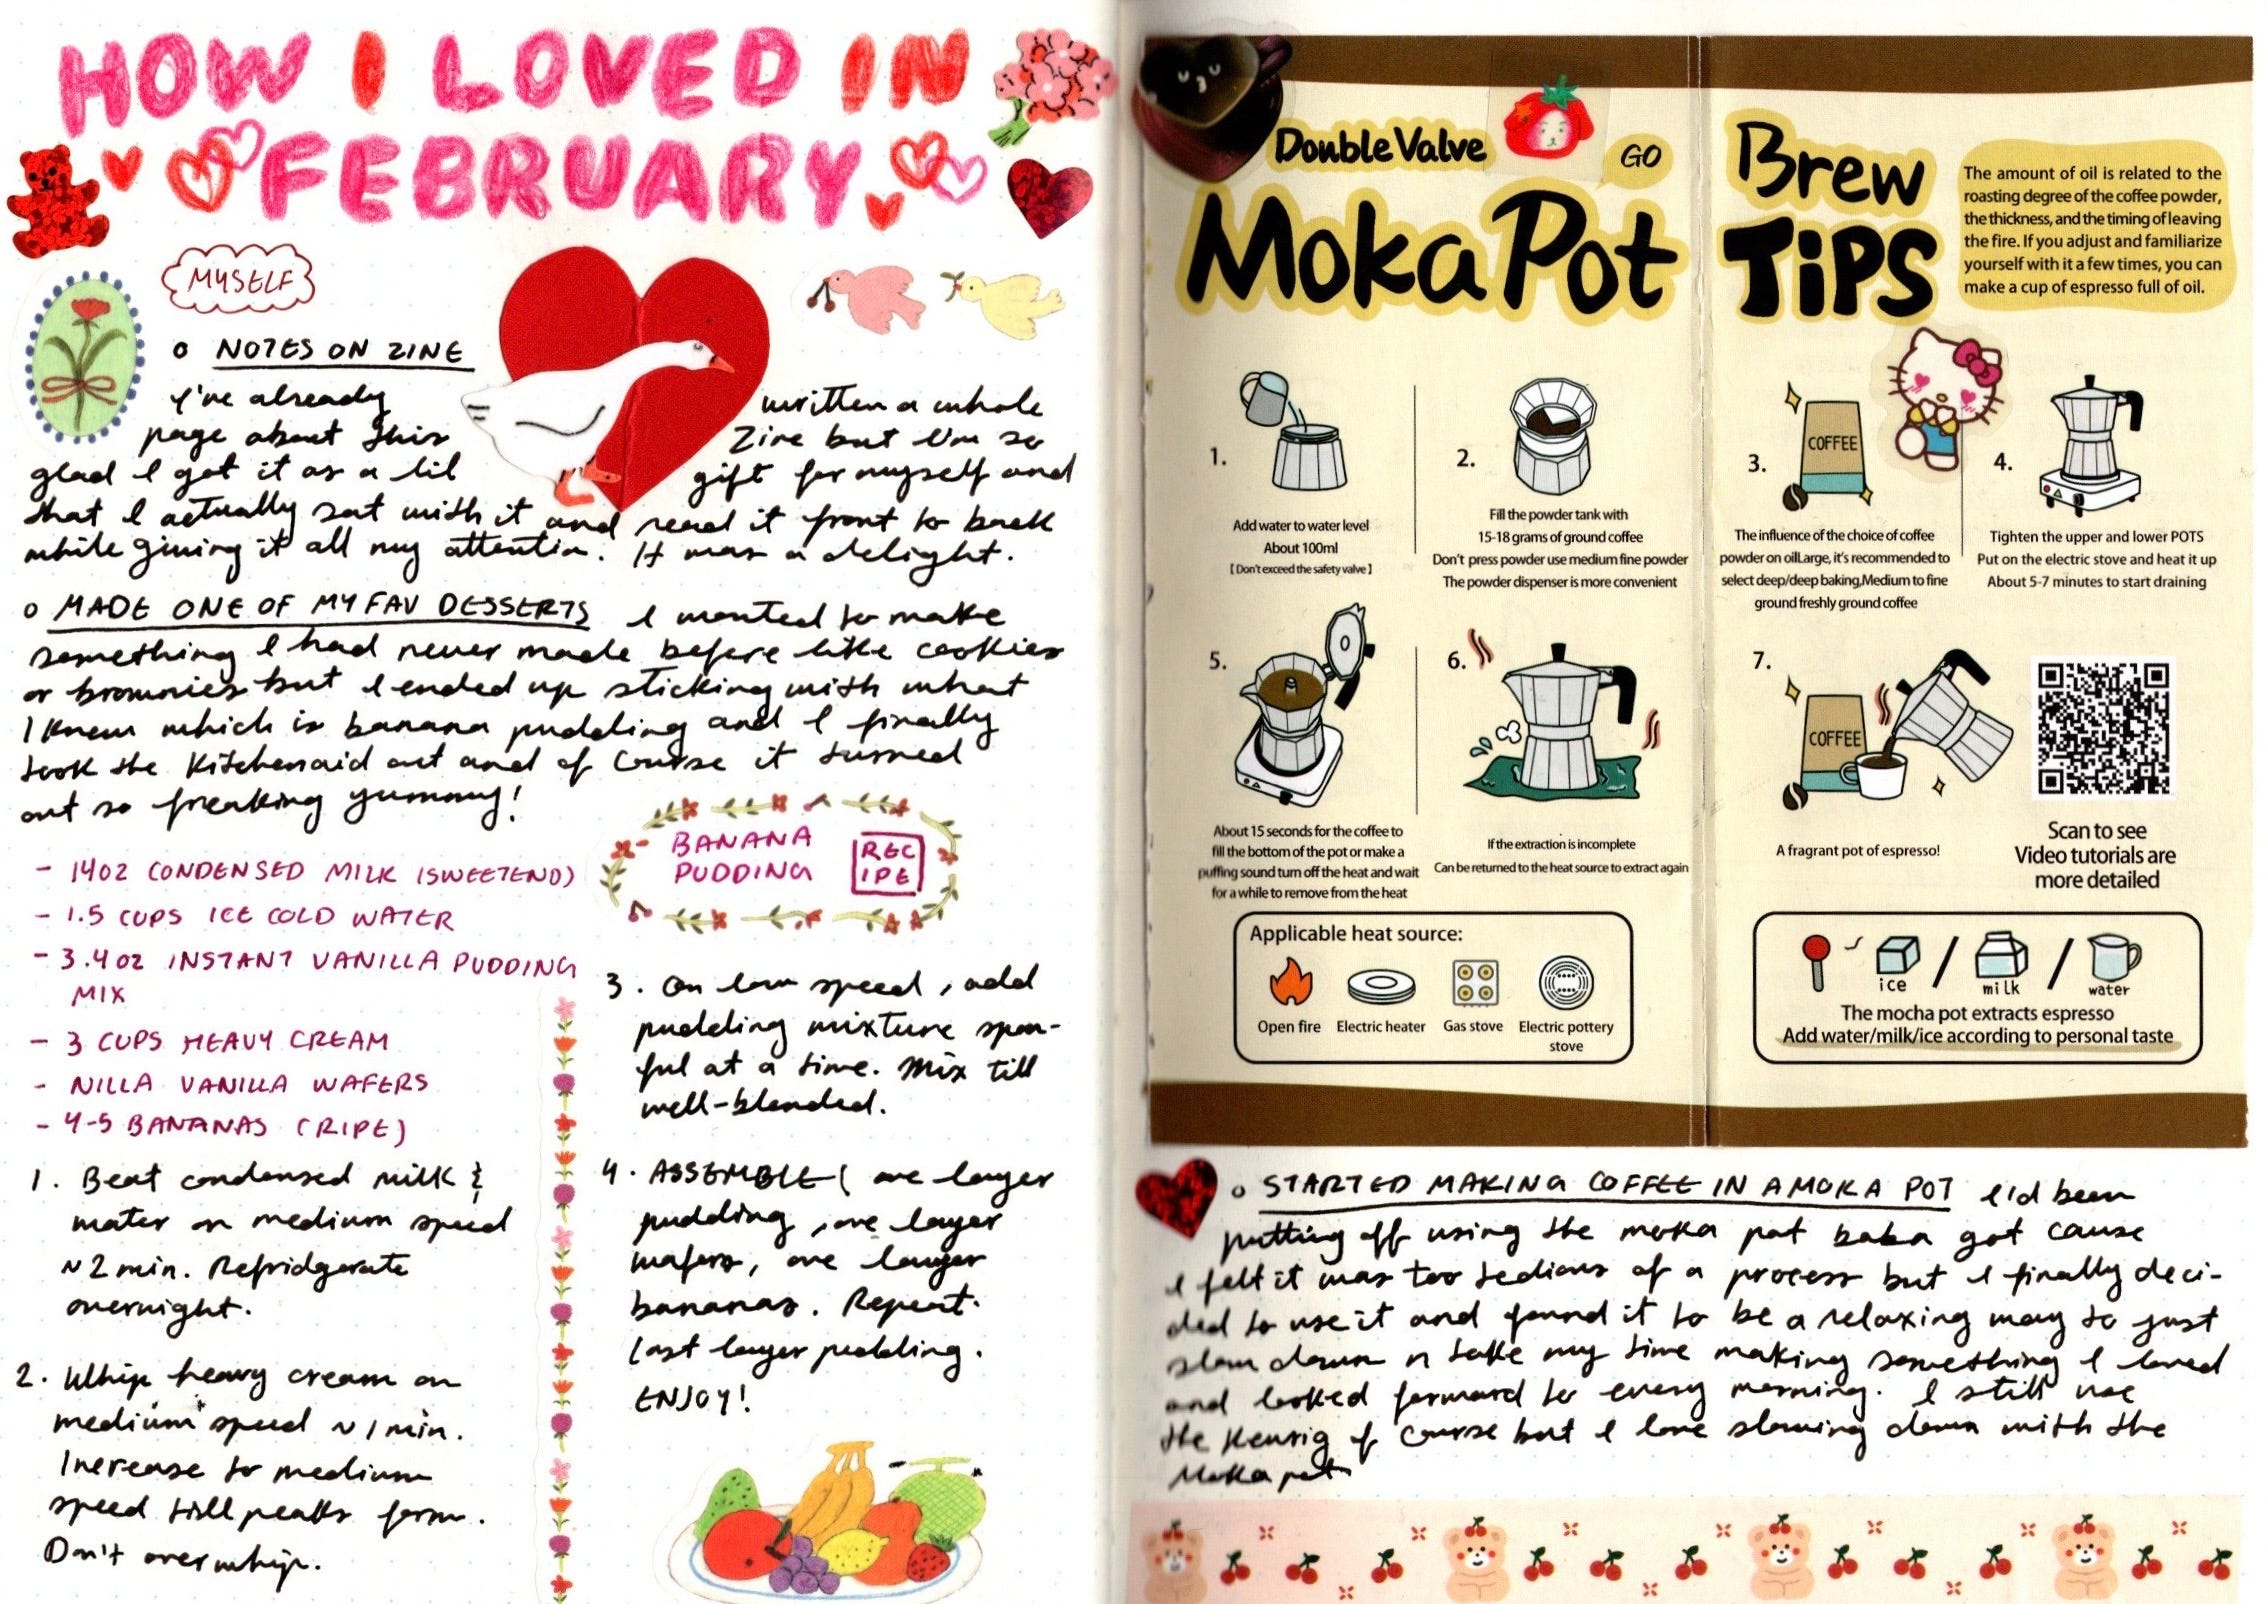 HOW I LOVED IN
FEBRUARY
MYSELF
o NOTES ON ZINE
I've already written a whole
page about this zine but I'm so
glad I got it as a lil gift for myself and
that I actually sat with it and read it front to back
while giving it all my attention. It was a delight.
o MADE ONE OF MY FAV DESSERTS I wanted to make
something I had never made before like cookies
or brownies but I ended up sticking with what
I knew which is banana pudding and I finally
took the Kitchenaid out and of course it turned
out so freaking yummy!
BANANA
PUDDING
REC
IPE
- 14OZ CONDENSED MILK (SWEETEND)
- 1.5 CUPS ICE COLD WATER
- 3.4 OZ INSTANT VANILLA PUDDING
MIX
- 3 CUPS HEAVY CREAM
- NILLA VANILLA WAFERS
- 4-5 BANANAS (RIPE)
1. Beat condensed milk &
water on medium speed
~2 min. Refridgerate
overnight.
2. Whip heavy cream on
medium speed ~1 min.
Increase to medium
speed till peaks form.
Don't overwhip.
3. On low speed, add
pudding mixture spon-
ful at a time. Mix till
well-blended.
4. ASSEMBLE( one layer
pudding, one layer
wafers, one layer
bananas. Repeat.
Last layer pudding.
ENJOY!
Double Valve
GO
Moka Pot
Brew
TiPS
The amount of oil is related to the
roasting degree of the coffee powder,
the thickness, and the timing of leaving
the fire. If you adjust and familiarize
yourself with it a few times, you can
make a cup of espresso full of oil.
1.
Add water to water level
About 100ml
[ Don't exceed the safety valve ]
2.
Fill the powder tank with
15-18 grams of ground coffee
Don't press powder use medium fine powder
The powder dispenser is more convenient
3.
COFFEE
The influence of the choice of coffee
powder on oilLarge, it's recommended to
select deep/deep baking,Medium to fine
ground freshly ground coffee
4.
Tighten the upper and lower POTS
Put on the electric stove and heat it up
About 5-7 minutes to start draining
5.
About 15 seconds for the coffee to
fill the bottom of the pot or make a
puffing sound turn off the heat and wait
for a while to remove from the heat
6.
If the extraction is incomplete
Can be returned to the heat source to extract again
7.
COFFEE
A fragrant pot of espresso!
Scan to see
Video tutorials are
more detailed
Applicable heat source:
Open fire
Electric heater
Gas stove
Electric pottery
stove
ice
milk
water
The mocha pot extracts espresso
Add water/milk/ice according to personal taste
o STARTED MAKING COFFEE IN A MOKA POT I'd been
putting off using the moka pot baba got cause
I felt it was too tedious of a process but I finally deci-
ded to use it and found it to be a relaxing way to just
slow down n take my time making something I loved
and looked forward to every morning. I still use
the Keurig of course but I love slowing down with the
Moka pot